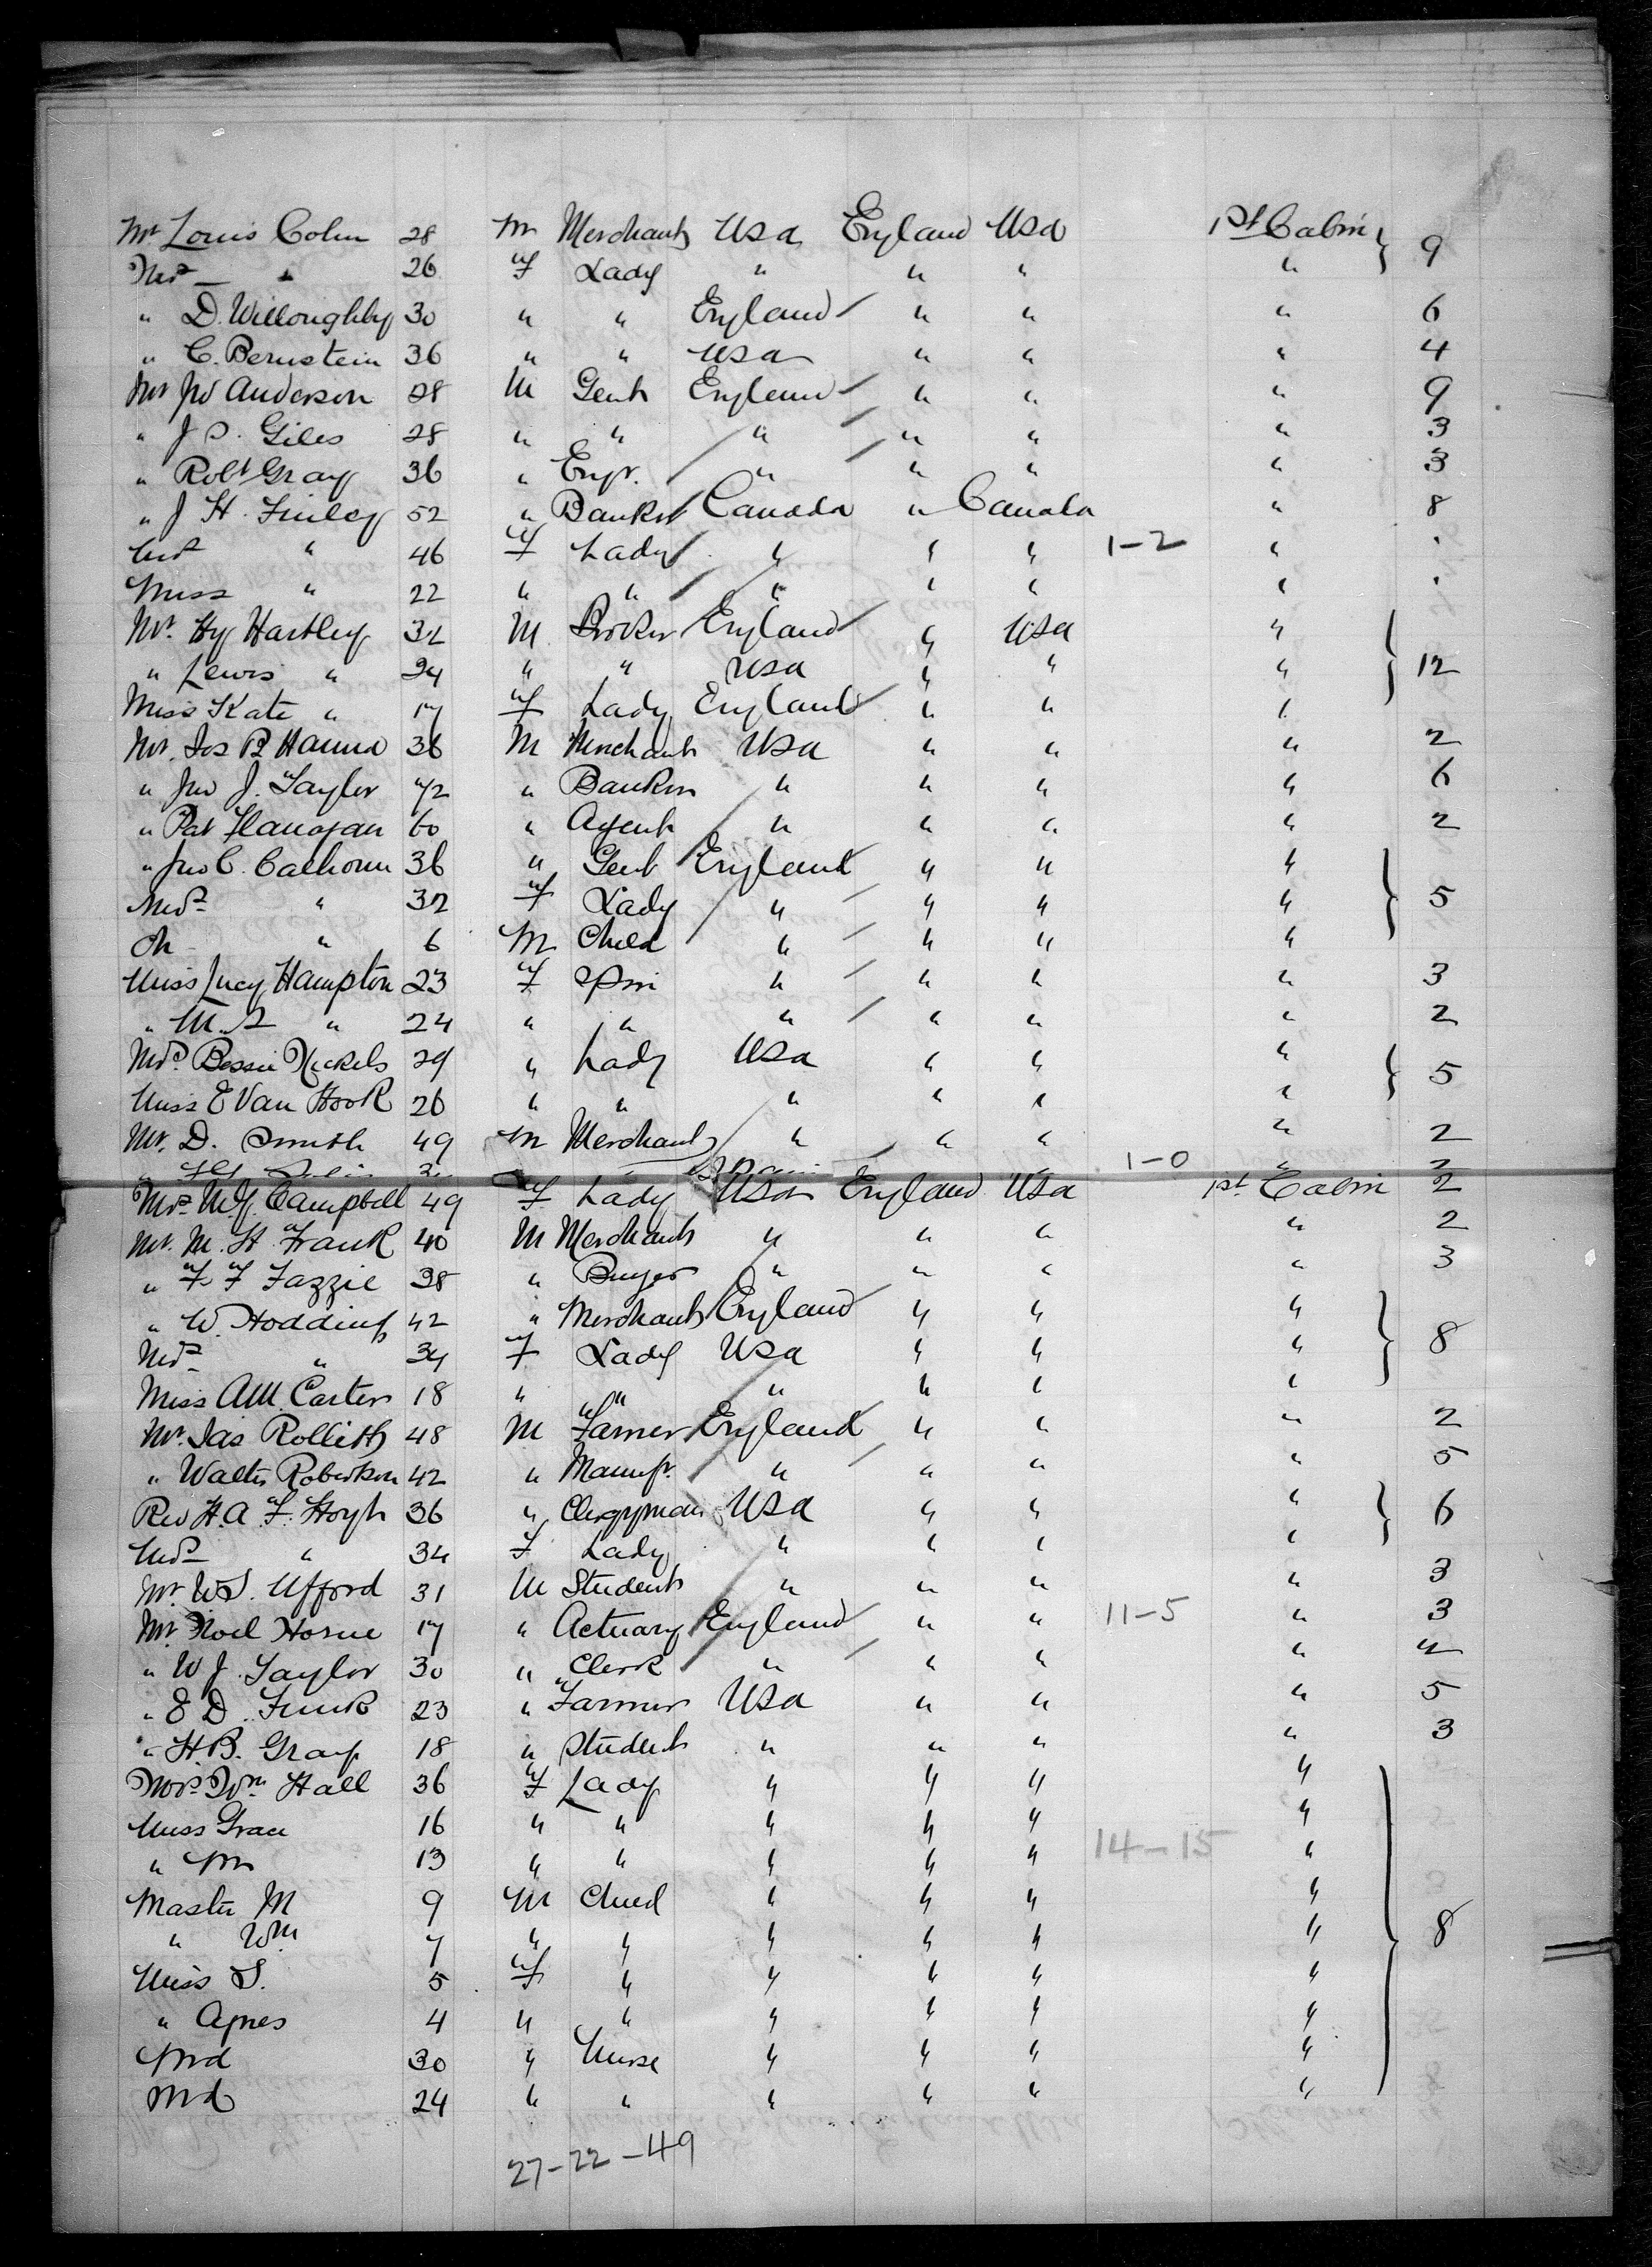 Mr Louis Cohn 28 M Merchant USA England USA 1st Cabin } 9
Mrs — " 26 F Lady " " " "
" D. Willoughby 30 " " England " " " 6
" C. Bernstein 36 " " USA " " " 4
Mr Jno Anderson 28 M Gent England " " " 9
" J S. Giles 28 " " " " " " 3
" Robt Gray 36 " Engr. " " " " 3
" J H. Finley 52 " Banker Canada " Canada " 8
Mrs " 46 F Lady " " " 1-2 " "
Miss " 22 " " " " " " "
Mr. Hy Hartley 32 M Broker England " USA " } 12
" Lewis " 24 " " USA " " "
Miss Kate " 17 F Lady England " " "
Mr. Jos B Hanna 36 M Merchant USA " " " 2
" Jno J. Taylor 42 " Banker " " " " 6
" Pat Flanagan 60 " Agent " " " " 2
" Jno C. Calhoun 36 " Gent England " " " } 5
Mrs " 32 F Lady " " " "
Ch " 6 M Child " " " "
Miss Lucy Hampton 23 F Spin " " " " 3
" M. S " 24 " " " " " " 2
Mrs Bessie Nickels 29 " Lady USA " " " } 5
Miss E Van Hook 26 " " " " " "
Mr. D. Smith 49 M Merchant " " " " 2
1-0 "
Mrs W J. Campbell 49 F Lady USA England USA 1st Cabin 2
Mr. M. H Frank 40 M Merchant " " " " 2
" F F Fazzie 38 " Buyer " " " " 3
" W. Hodding 42 " Merchant England " " " } 8
Mrs " 34 F Lady USA " " "
Miss A M. Carter 18 " " " " " "
Mr. Jas Rollitt 48 M Farmer England " " " 2
" Walter Robertson 42 " Manufr. " " " " 5
Rev H. A. F. Hoyt 36 " Clergyman USA " " " } 6
Mrs " 34 F Lady " " " "
Mr. W S. Ufford 31 M Student " " " " 3
Mr. Noel Horne 17 " Actuary England " " 11-5 " 3
" W J. Taylor 30 " Clerk " " " " 4
" E D. Funk 23 " Farmer USA " " " 5
" H. B. Gray 18 " Student " " " " 3
Mrs Wm Hall 36 F Lady " " " " } 8
Miss Grace 16 " " " " " "
" M 13 " " " " " 14-15 "
Master M 9 M Child " " " "
" Wm 7 " " " " " "
Miss S. 5 F " " " " "
" Agnes 4 " " " " " "
Md 30 " Nurse " " " "
Md 24 " " " " " "
27-22-49